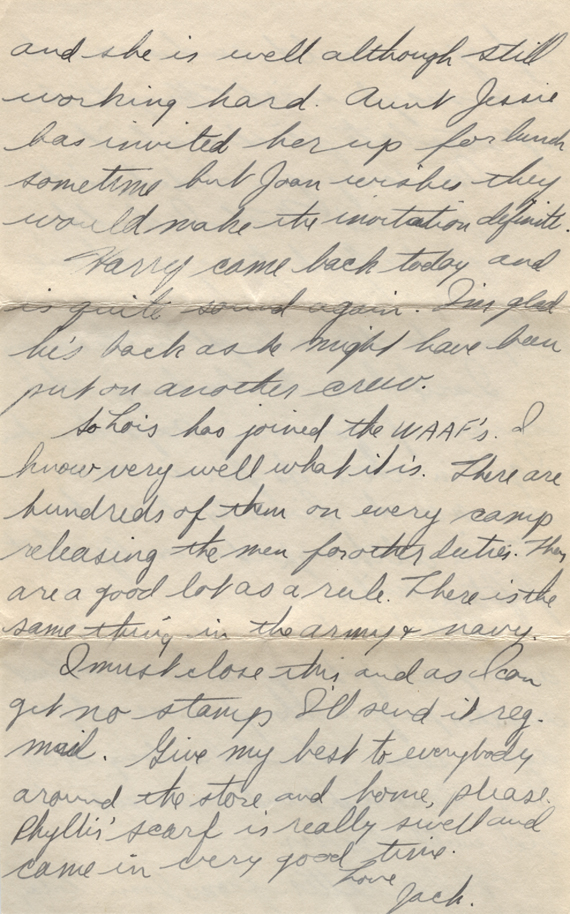 and she is well although still
working hard. Aunt Jessie
has invited her up for lunch
sometime but Joan wishes they
would make the invitation definite.
Harry came back today and
is quite sound again. I'm glad
he's back as he might have been
put on another crew.
So Lois has joined the WAAF's. I
know very well what it is. There are
hundreds of them on every camp
releasing the men for other duties. They
are a good lot as a rule. There is the
same thing in the army & navy.
I must close this and as I can
get no stamps I'll send it reg.
mail. Give my best to everybody
around the store and home, please.
Phyllis' scarf is really swell and
came in very good time.
Love
Jack.